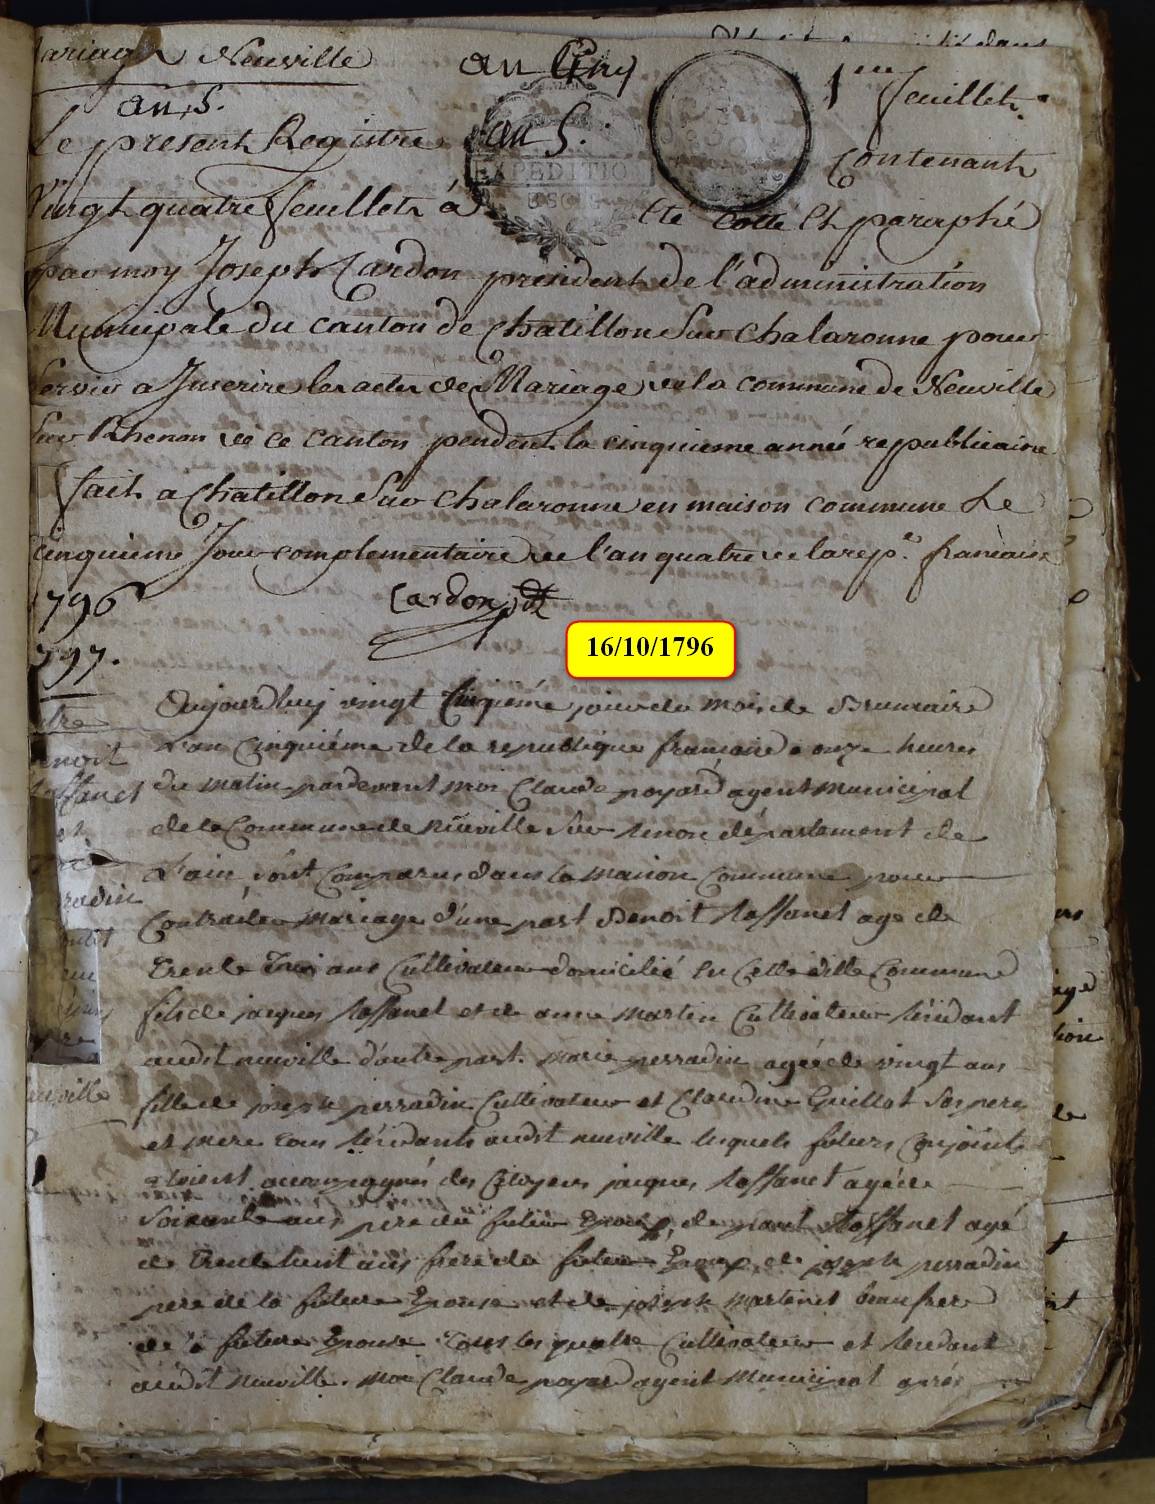 Mariage Neuville
an 5.
an Cinq
an 5.
EXPEDITION
1er feuillet.
Le present Registre Contenant
Vingt quatre feuillets à été Cotté Et paraphé
par moy Joseph Cardon president de l'administration
Municipale du canton de Chatillon Sur Chalaronne pour
Servir a Inscrire les actes de Mariage de la commune de Neuville
Sur Rhenon de ce canton pendent la cinquieme année republicaine
fait a Chatillon Sur Chalaronne en maison commune Le
Cinquieme Jour complementaire de l'an quatre de la rep.e francaise
1796 Cardon pdt
1797.
16/10/1796
Aujourdhuy vingt Cinquiéme jour du mois de Brumaire
L'an Cinquiéme de la republique francaise a onze heures
du matin pardevant moi Claude poyard agent Municipal
de la Commune de Neuville Sur renon département de
L'ain sont Comparus dans la maison Commune pour
Contracter mariage d'une part Benoit Taffanet agé de
trente trois ans Cultivateur domicilié En Cette ditte Commune
fils de jacques Taffanet et de anne Martin Cultivateur résidant
audit neuville d'autre part. Marie perradin agée de vingt ans
fille de joseph perradin Cultivateur et Claudine Guillot Ses pere
et mere tous résidants audit neuville lesquels futurs Conjoints
etoient accompagnés des Citoyens jacques Taffanet agé de
Soixante ans pere du futur Epoux, de Taffanet agé
de trente huit ans frere du futur Epoux, de joseph perradin
pere de la future Epouse et de joseph Martinet beaufrere
de la future Epouse tous les quatre Cultivateur et residant
audit Neuville. moi Claude poyard agent Municipal aprés